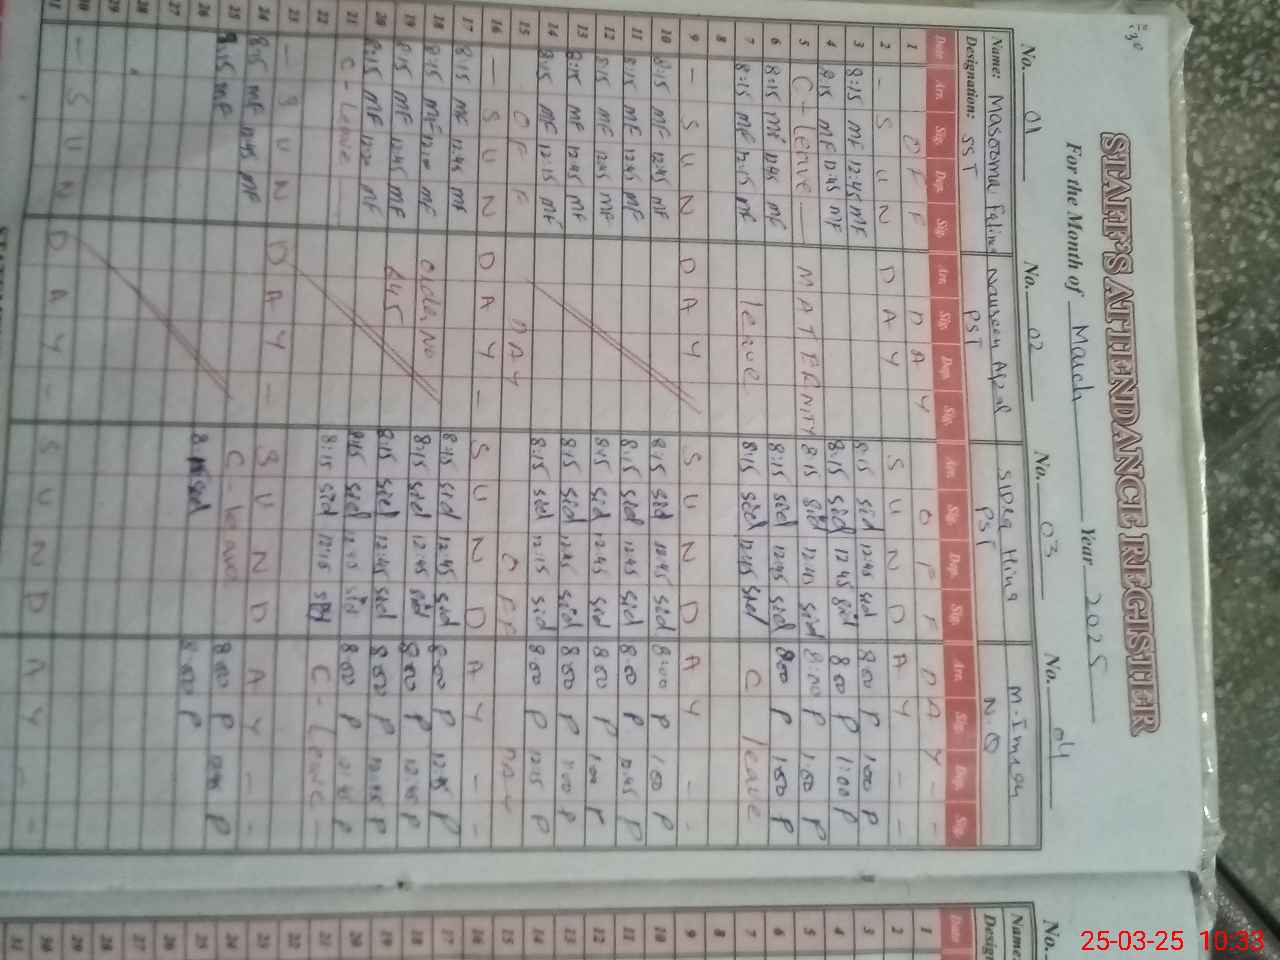 STAFF'S ATTENDANCE REGISTER
For the Month of March Year 2025
No. 01 No. 02 No. 03 No. 04
Name: Masooma Nauseen Afzal Hina M. Imran
Designation: SST PST PST N.Q
Date Arr. Sig. Dep. Sig. Arr. Sig. Dep. Sig. Arr. Sig. Dep. Sig. Arr. Sig. Dep. Sig.
1 O F F D A Y O F F D A Y - -
2 - S U N D A Y S U N D A Y - -
3 8:15 MF 12:45 MF 8:15 sid 12:45 sid 8:00 P 1:00 P
4 8:15 MF 12:45 MF 8:15 sid 12:45 sid 8:00 P 1:00 P
5 C - leave - M A T E R N I T Y 8:15 sid 12:45 sid 8:00 P 1:00 P
6 8:15 MF 12:45 MF 8:15 sid 12:45 sid 8:00 P 1:00 P
7 8:15 MF 12:15 MF leave 8:15 sid 12:15 sid C leave
8
9 - S U N D A Y S U N D A Y - -
10 8:15 MF 12:45 MF 8:15 sid 12:45 sid 8:00 P 1:00 P
11 8:15 MF 12:45 MF 8:15 sid 12:45 sid 8:00 P 12:45 P
12 8:15 MF 12:45 MF 8:15 sid 12:45 sid 8:00 P 1:00 P
13 8:15 MF 12:45 MF 8:15 sid 12:45 sid 8:00 P 1:00 P
14 8:15 MF 12:15 MF 8:15 sid 12:15 sid 8:00 P 12:15 P
15 O F F D A Y O F F D A Y
16 - S U N D A Y - S U N D A Y - -
17 8:15 MF 12:45 MF 8:15 sid 12:45 sid 8:00 P 12:45 P
18 8:15 MF 12:00 MF Order No 8:15 sid 12:45 sid 8:00 P 12:45 P
19 8:15 MF 12:45 MF 245 8:15 sid 12:45 sid 8:00 P 12:45 P
20 8:15 MF 12:20 MF 8:15 sid 12:45 sid 8:00 P 12:45 P
21 C - leave - 8:15 sid 12:15 sid C - Leave -
22
23 - S U N D A Y - S U N D A Y - -
24 8:15 MF 12:45 MF C - leave 8:00 P 12:45 P
25 8:15 MF 8:15 sid 8:00 P
26
27
28
29
30 - S U N D A Y - S U N D A Y - -
31
No.
Name:
Date
1
2
3
4
5
6
7
8
9
10
11
12
13
14
15
16
17
18
19
20
21
22
23
24
25
26
27
28
29
30
31
25-03-25 10:33